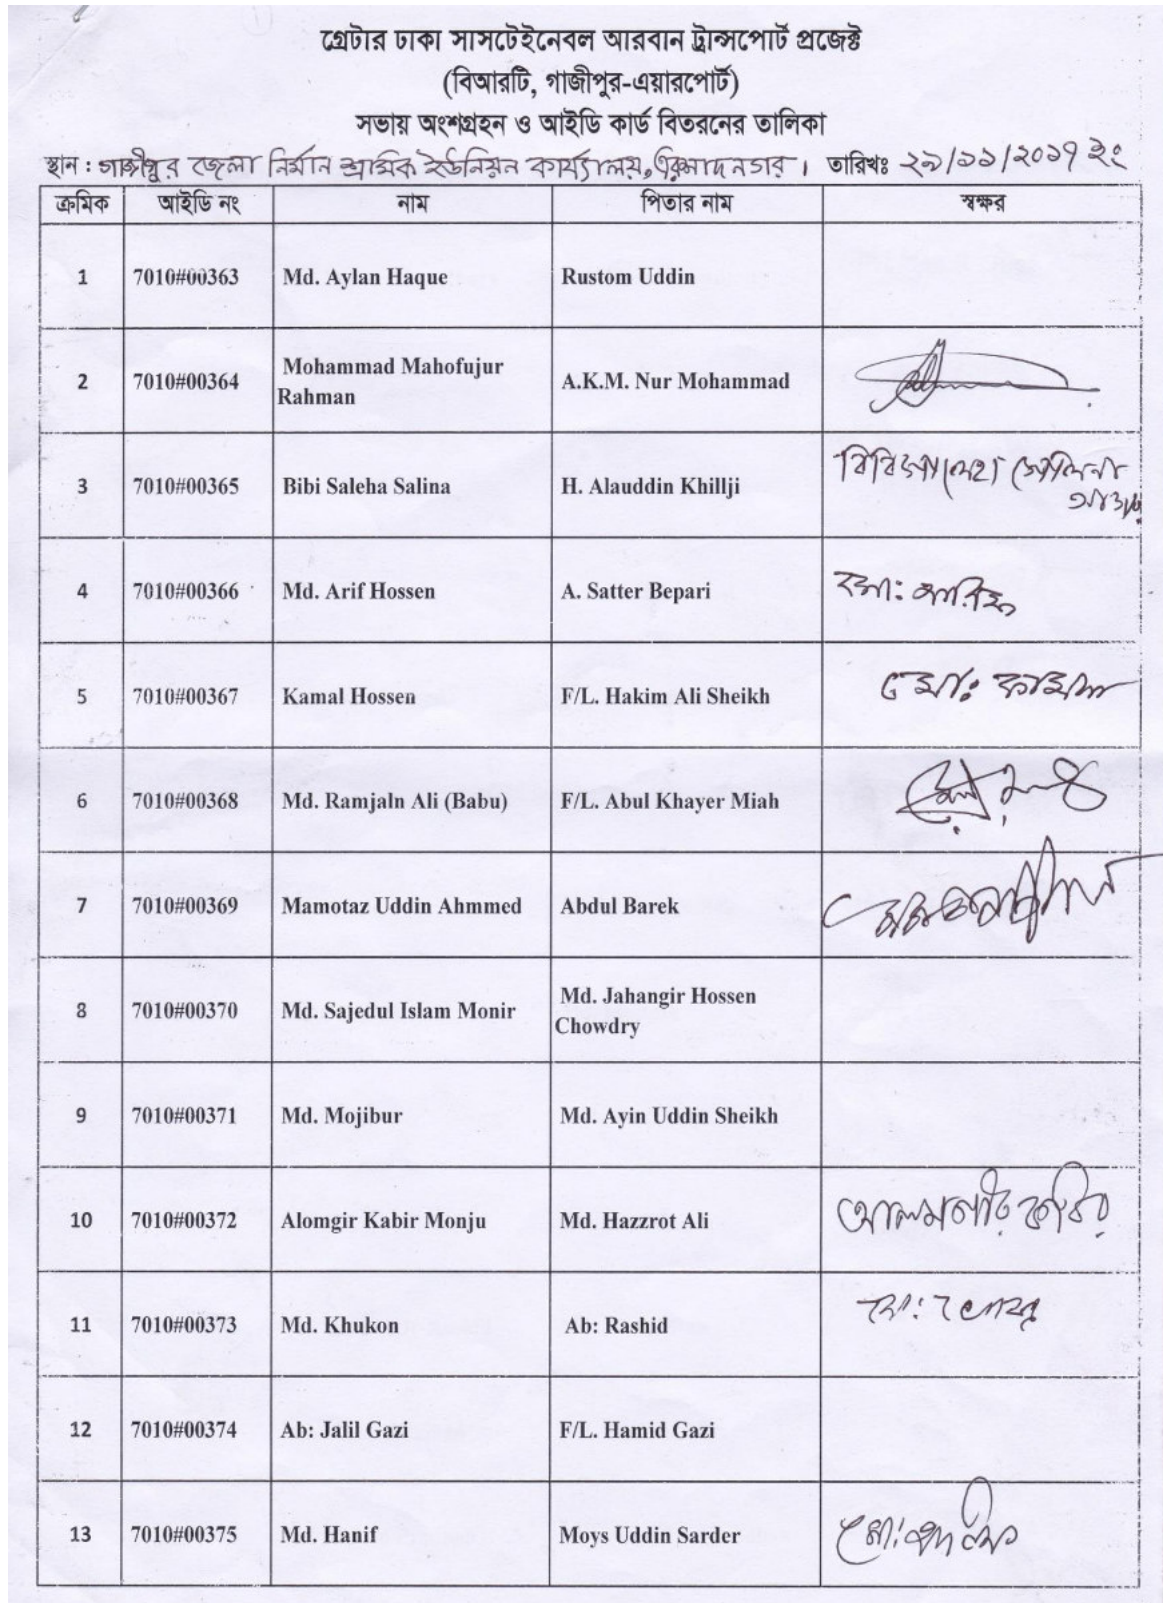 গ্রেটার ঢাকা সাসটেইনেবল আরবান ট্রান্সপোর্ট প্রজেক্ট
(বিআরটি, গাজীপুর-এয়ারপোর্ট)
সভায় অংশগ্রহন ও আইডি কার্ড বিতরনের তালিকা
স্থান : গাজীপুর জেলা নির্মান শ্রমিক ইউনিয়ন কার্য্যালয়, তারিখঃ ২৯/১১/২০১৭ ইং
ক্রমিক আইডি নং নাম পিতার নাম স্বক্ষর
1 7010#00363 Md. Aylan Haque Rustom Uddin
2 7010#00364 Mohammad Mahofujur Rahman A.K.M. Nur Mohammad
3 7010#00365 Bibi Saleha Salina H. Alauddin Khillji বিবি সালেহা সেলিনা
4 7010#00366 Md. Arif Hossen A. Satter Bepari মো: আরিফ
5 7010#00367 Kamal Hossen F/L. Hakim Ali Sheikh মোঃ কামাল
6 7010#00368 Md. Ramjaln Ali (Babu) F/L. Abul Khayer Miah
7 7010#00369 Mamotaz Uddin Ahmmed Abdul Barek
8 7010#00370 Md. Sajedul Islam Monir Md. Jahangir Hossen Chowdry
9 7010#00371 Md. Mojibur Md. Ayin Uddin Sheikh
10 7010#00372 Alomgir Kabir Monju Md. Hazzrot Ali আলমগীর কবির
11 7010#00373 Md. Khukon Ab: Rashid
12 7010#00374 Ab: Jalil Gazi F/L. Hamid Gazi
13 7010#00375 Md. Hanif Moys Uddin Sarder মো: হানিফ